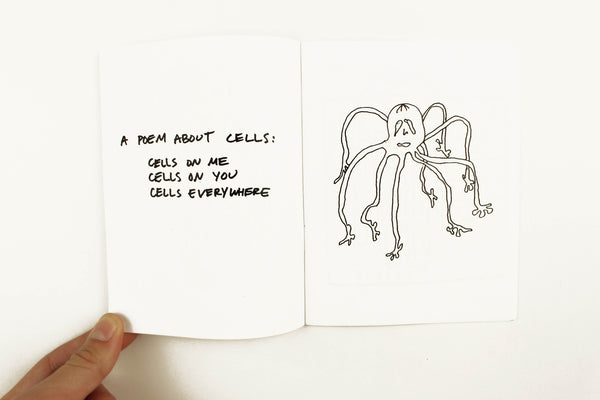 A POEM ABOUT CELLS:
CELLS ON ME
CELLS ON YOU
CELLS EVERYWHERE